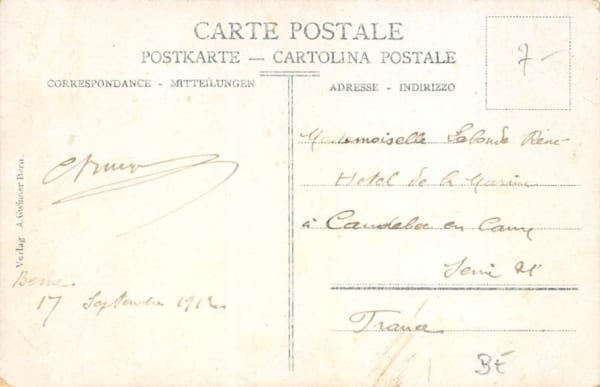 CARTE POSTALE
POSTKARTE — CARTOLINA POSTALE
CORRESPONDANCE - MITTEILUNGEN
ADRESSE - INDIRIZZO
7-
Verlag A. Gwinner Bern.
Berne
17 Septembre 1912
Mademoiselle Lalonde René
Hotel de la Marine
à Caudebec en Caux
Seine Infre
France
BE